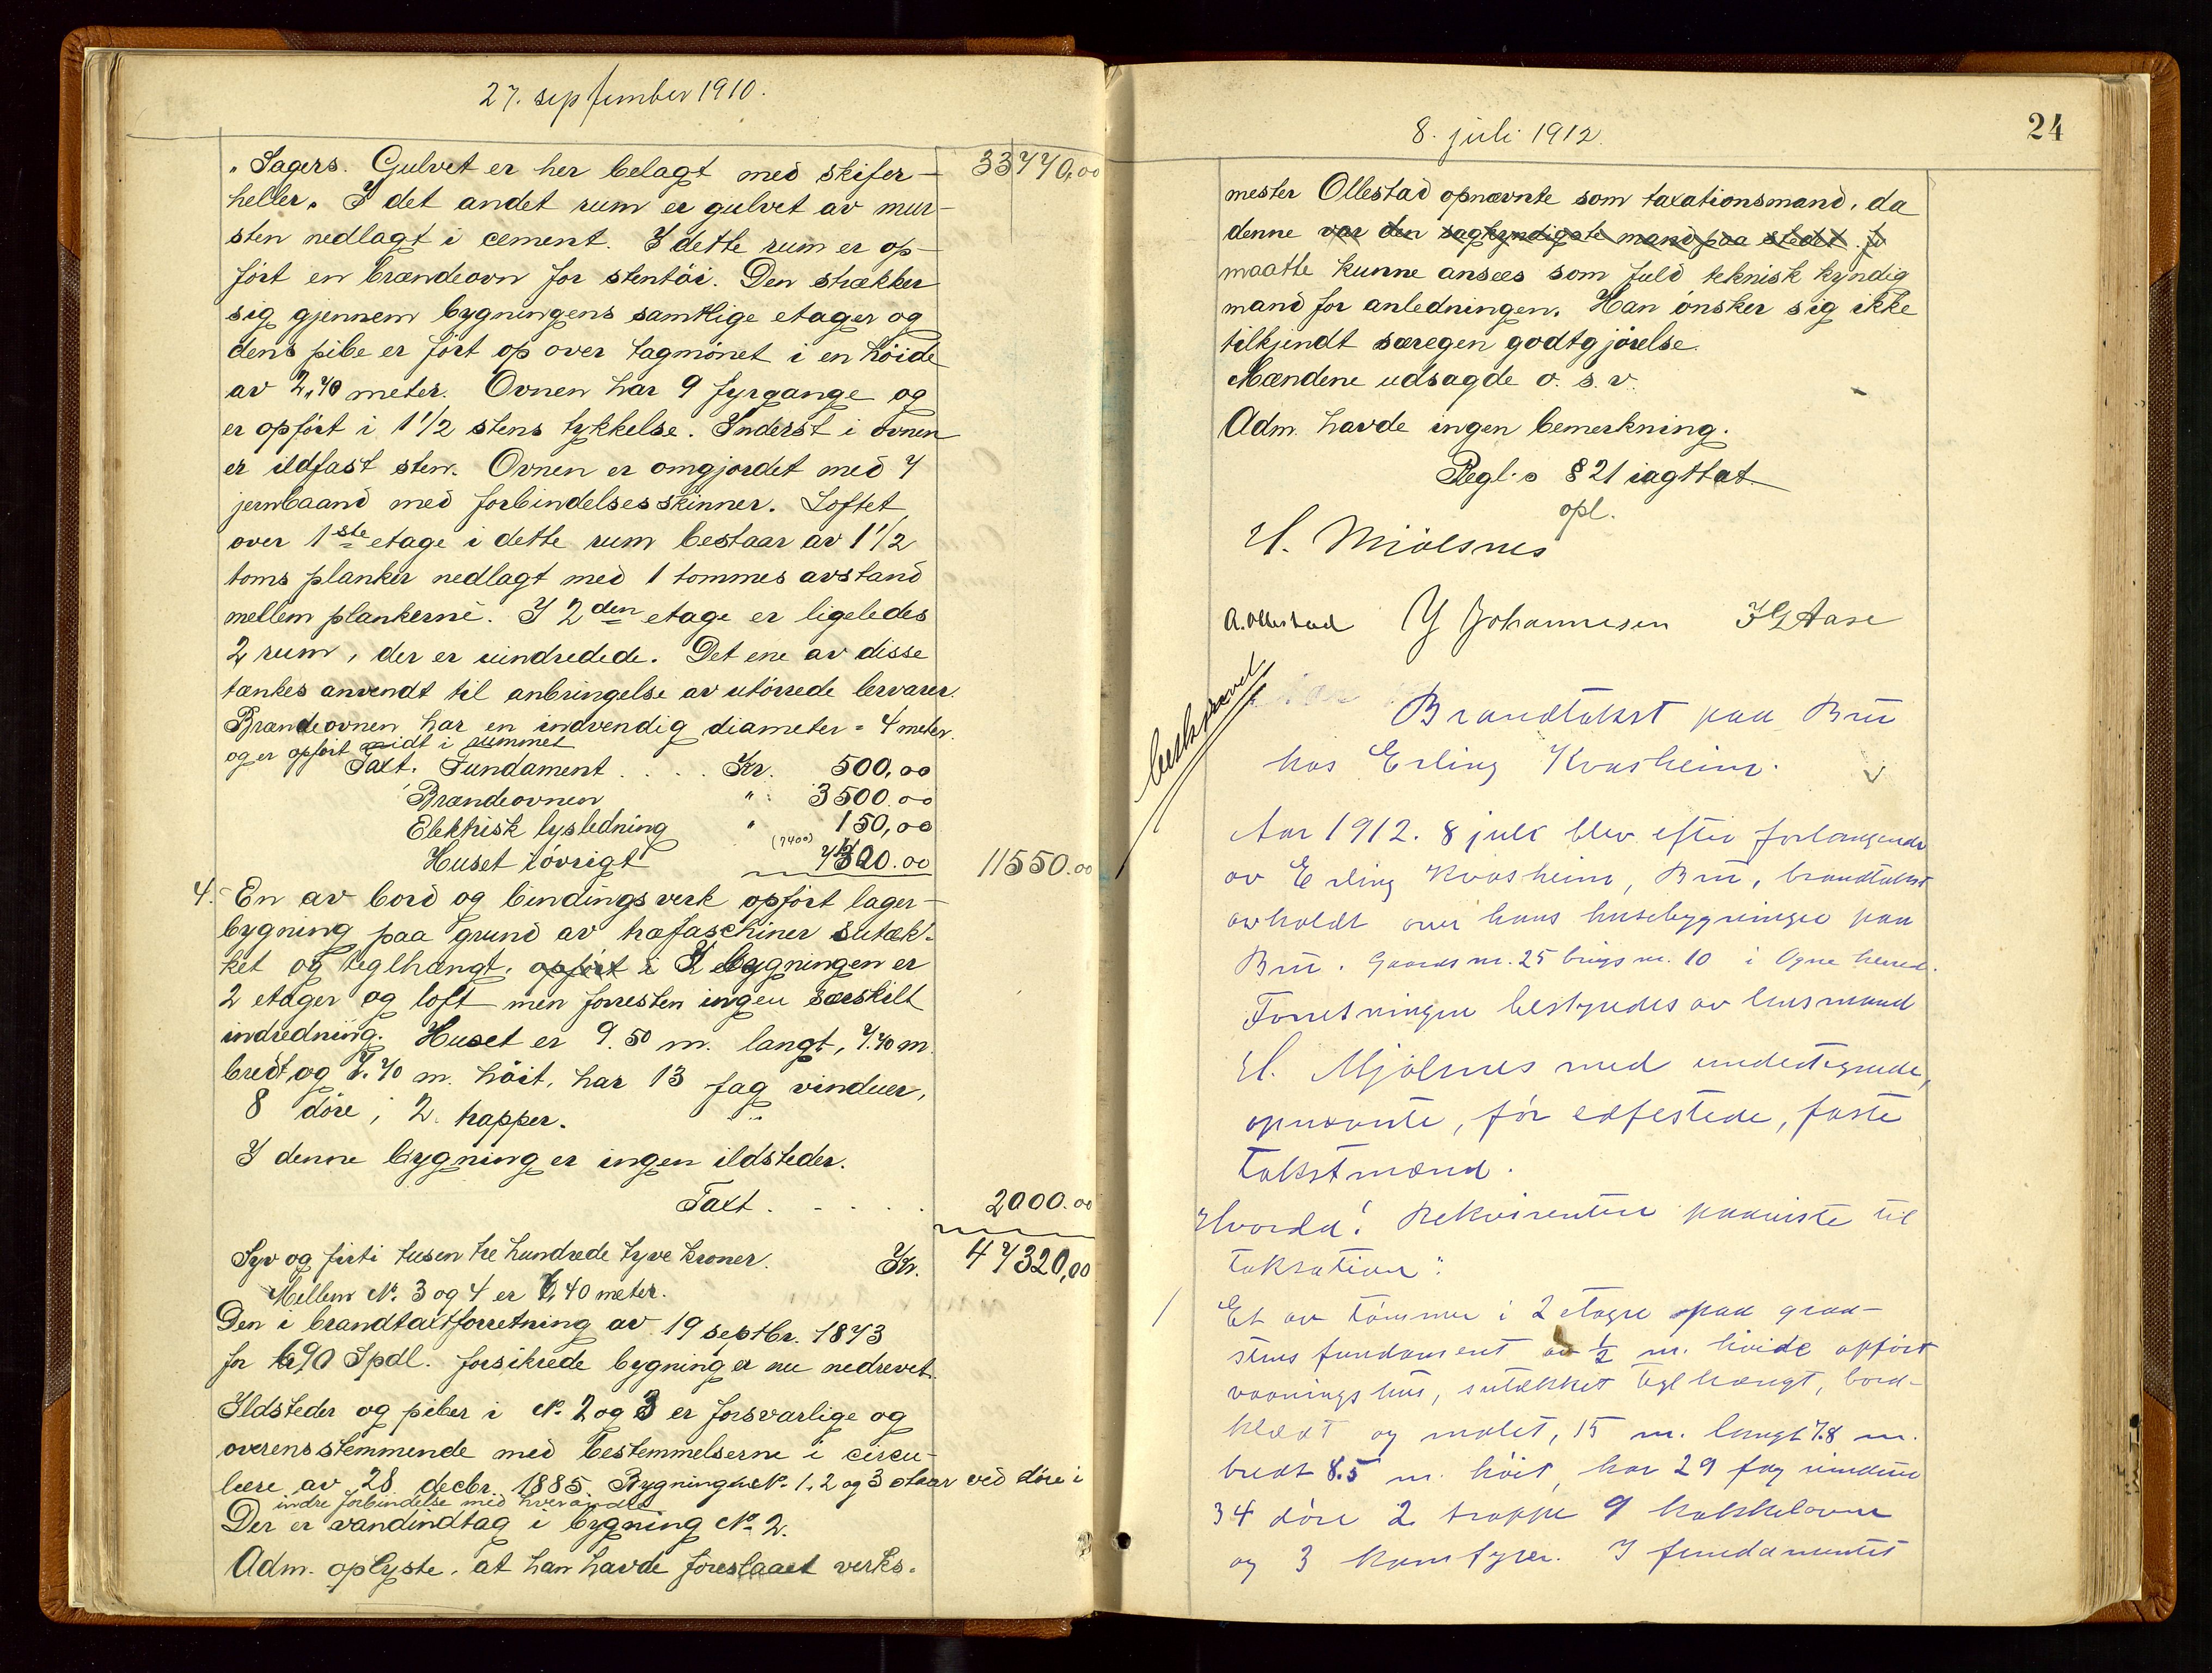 27. september 1910.
" Lagers. Gulvet er her belagt med skifer- 33770,00
heller. I det andet rum er gulvet av mur-
sten nedlagt i cement. I dette rum er op-
ført en brændeovn for stentöi. Den strækker
sig gjennem bygningens samtlige etager og
dens pibe er ført op over tagmönet i en höide
av 2,70 meter. Ovnen har 9 fyrgange og
er opført i 1 1/2 stens tykkelse. Inderst i ovnen
er ildfast sten. Ovnen er omgjordet med 7
jernbaand med forbindelsesskinner. Loftet
over 1ste etage i dette rum bestaar av 1 1/2
toms planker nedlagt med 1 tommes avstand
mellem plankerne. I 2den etage er ligeledes
2 rum, der er uindredede. Det ene av disse
tænkes anvendt til anbringelse av utörrede lervarer.
Brændeovnen har en indvendig diameter = 4 meter.
og er opført midt i rummet
Taxt. Fundament . . . . Kr. 500,00
Brændeovnen " 3500.00
Elektrisk lysledning " 150,00
Huset iövrigt (7400) 7400.00 11550.00
4. En av bord og bindingsverk opført lager-
bygning paa grund av træfaschiner sutæk-
ket og teglhængt. opført i I bygningen er
2 etager og loft men forresten ingen særskilt
indredning. Huset er 9.50 m. langt, 7.70 m.
bredt og 7.70 m. höit, har 13 fag vinduer,
8 döre, 2 trapper.
I denne bygning er ingen ildsteder.
Taxt . . . . . 2000.00
Syv og firti tusen tre hundrede tyve kroner. Kr. 47320,00
Mellem No. 3 og 4 er 7,40 meter.
Den i brandtaxtforretning av 19 septbr. 1873
for 690 Spdl. forsikrede bygning er nu nedrevet.
Ildsteder og piber i No. 2 og 3 er forsvarlige og
overensstemmende med bestemmelserne i circu-
lære av 28 decbr. 1885. Bygningne No. 1, 2 og 3 staar ved döre i
indre forbindelse med hverandre
Der er vandindtag i bygning No. 2.
Adm. oplyste, at han havde foreslaaet verks-
24
8. juli 1912.
mester Ollestad opnævnte som taxationsmand, da
denne var den sagkyndigste mand paa stedet.
maatte kunne ansees som fuld teknisk kyndig
mand for anledningen. Han önsker sig ikke
tilkjendt særegen godtgjörelse.
Mændene udsagde o. s. v.
Adm. havde ingen bemerkning.
Regl.s § 21 iagttat
opl.
H. Mjölsnes
A. Ollestad Y Johannesen Aase
beskrevet
Brandtakst paa Bru
hos Erling Kvasheim.
Aar 1912. 8 juli blev efter forlangende
av Erling Kvasheim, Bru, brandtakst
avholdt over hans husebygninger paa
Bru. Gaards nr. 25 brugs nr. 10 i Ogne herred.
Forretningen bestyredes av lensmand
H. Mjølsnes med undertegnede,
opnævnte, før edfestede, faste
takstmænd.
Hvorda! Rekvirenten paaviste til
taksation:
1 Et av tömmer i 2 etager paa graa-
stens fundament av 1/2 m. höide opført
vaaningshus, sutækket teglhængt, bord-
klædt og malet, 15 m. langt 7.8 m.
bredt 8.5 m. höit, har 29 fag vinduer
34 döre 2 trapper 9 kakkelovne
og 3 komfyrer. I fundamentet